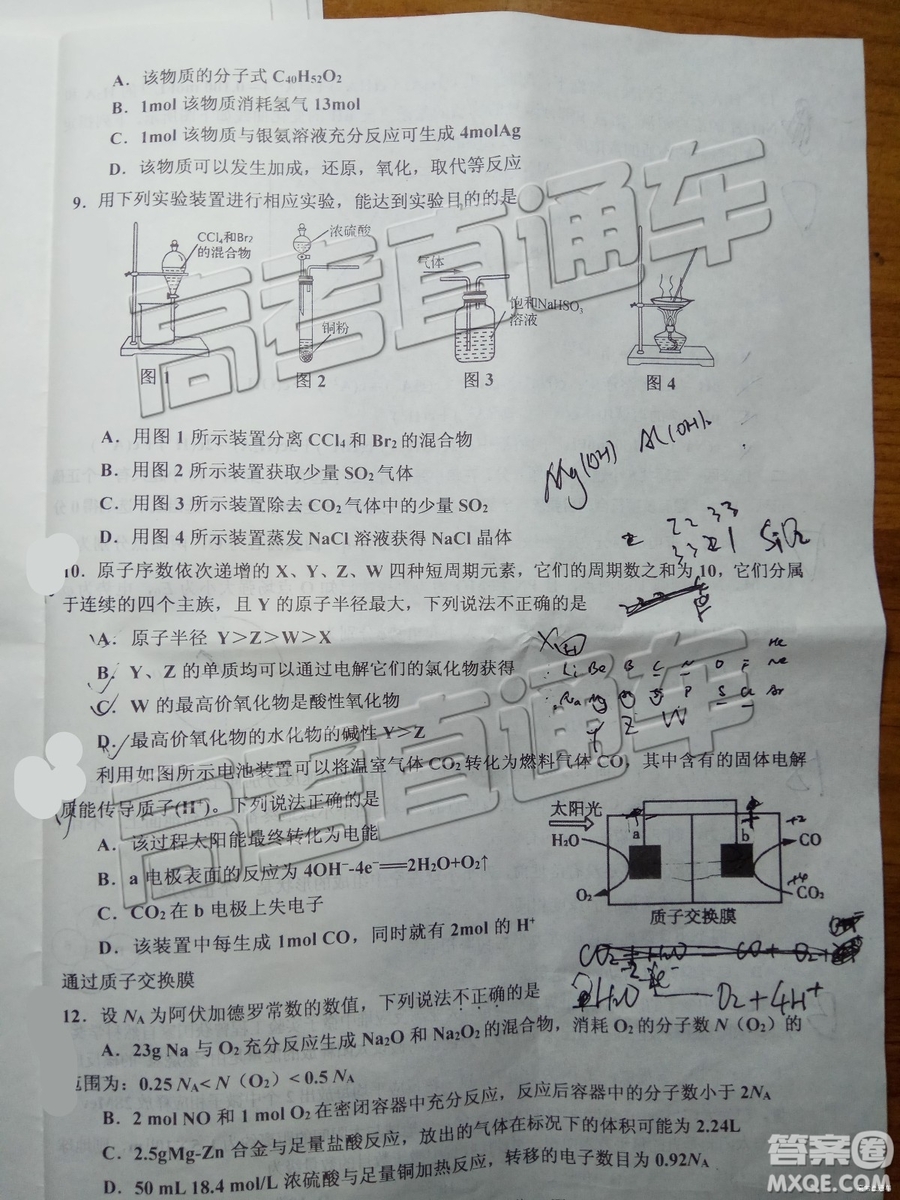 A．该物质的分子式 C₄₀H₅₂O₂
B．1mol 该物质消耗氢气 13mol
C．1mol 该物质与银氨溶液充分反应可生成 4molAg
D．该物质可以发生加成，还原，氧化，取代等反应
9．用下列实验装置进行相应实验，能达到实验目的的是
CCl₄和Br₂
的混合物
浓硫酸
铜粉
气体
饱和NaHSO₃
溶液
图 1
图 2
图 3
图 4
A．用图 1 所示装置分离 CCl₄ 和 Br₂ 的混合物
B．用图 2 所示装置获取少量 SO₂ 气体
C．用图 3 所示装置除去 CO₂ 气体中的少量 SO₂
D．用图 4 所示装置蒸发 NaCl 溶液获得 NaCl 晶体
Mg(OH) Al(OH)₃
2 2 3 3
3 3 2 1
SiO₂
10．原子序数依次递增的 X、Y、Z、W 四种短周期元素，它们的周期数之和为 10，它们分属
于连续的四个主族，且 Y 的原子半径最大，下列说法不正确的是
A．原子半径 Y＞Z＞W＞X
B．Y、Z 的单质均可以通过电解它们的氯化物获得
C．W 的最高价氧化物是酸性氧化物
D．最高价氧化物的水化物的碱性 Y＞Z
X H He
Li Be B C N O F Ne
Na Mg P S Cl Ar
Y Z W
利用如图所示电池装置可以将温室气体 CO₂ 转化为燃料气体 CO，其中含有的固体电解
质能传导质子(H⁺)。下列说法正确的是
A．该过程太阳能最终转化为电能
B．a 电极表面的反应为 4OH⁻-4e⁻══2H₂O+O₂↑
C．CO₂ 在 b 电极上失电子
D．该装置中每生成 1mol CO，同时就有 2mol 的 H⁺
通过质子交换膜
太阳光
H₂O
O₂
a
b
CO
CO₂
+2
+4
质子交换膜
CO₂+H₂O — CO+O₂+
2H₂O -4e⁻ — O₂+4H⁺
12．设 Nᴀ 为阿伏加德罗常数的数值，下列说法不正确的是
A．23g Na 与 O₂ 充分反应生成 Na₂O 和 Na₂O₂ 的混合物，消耗 O₂ 的分子数 N（O₂）的
范围为：0.25 Nᴀ< N（O₂）< 0.5 Nᴀ
B．2 mol NO 和 1 mol O₂ 在密闭容器中充分反应，反应后容器中的分子数小于 2Nᴀ
C．2.5gMg-Zn 合金与足量盐酸反应，放出的气体在标况下的体积可能为 2.24L
D．50 mL 18.4 mol/L 浓硫酸与足量铜加热反应，转移的电子数目为 0.92Nᴀ
高考直通车
高考直通车
答案圈
MXQE.COM